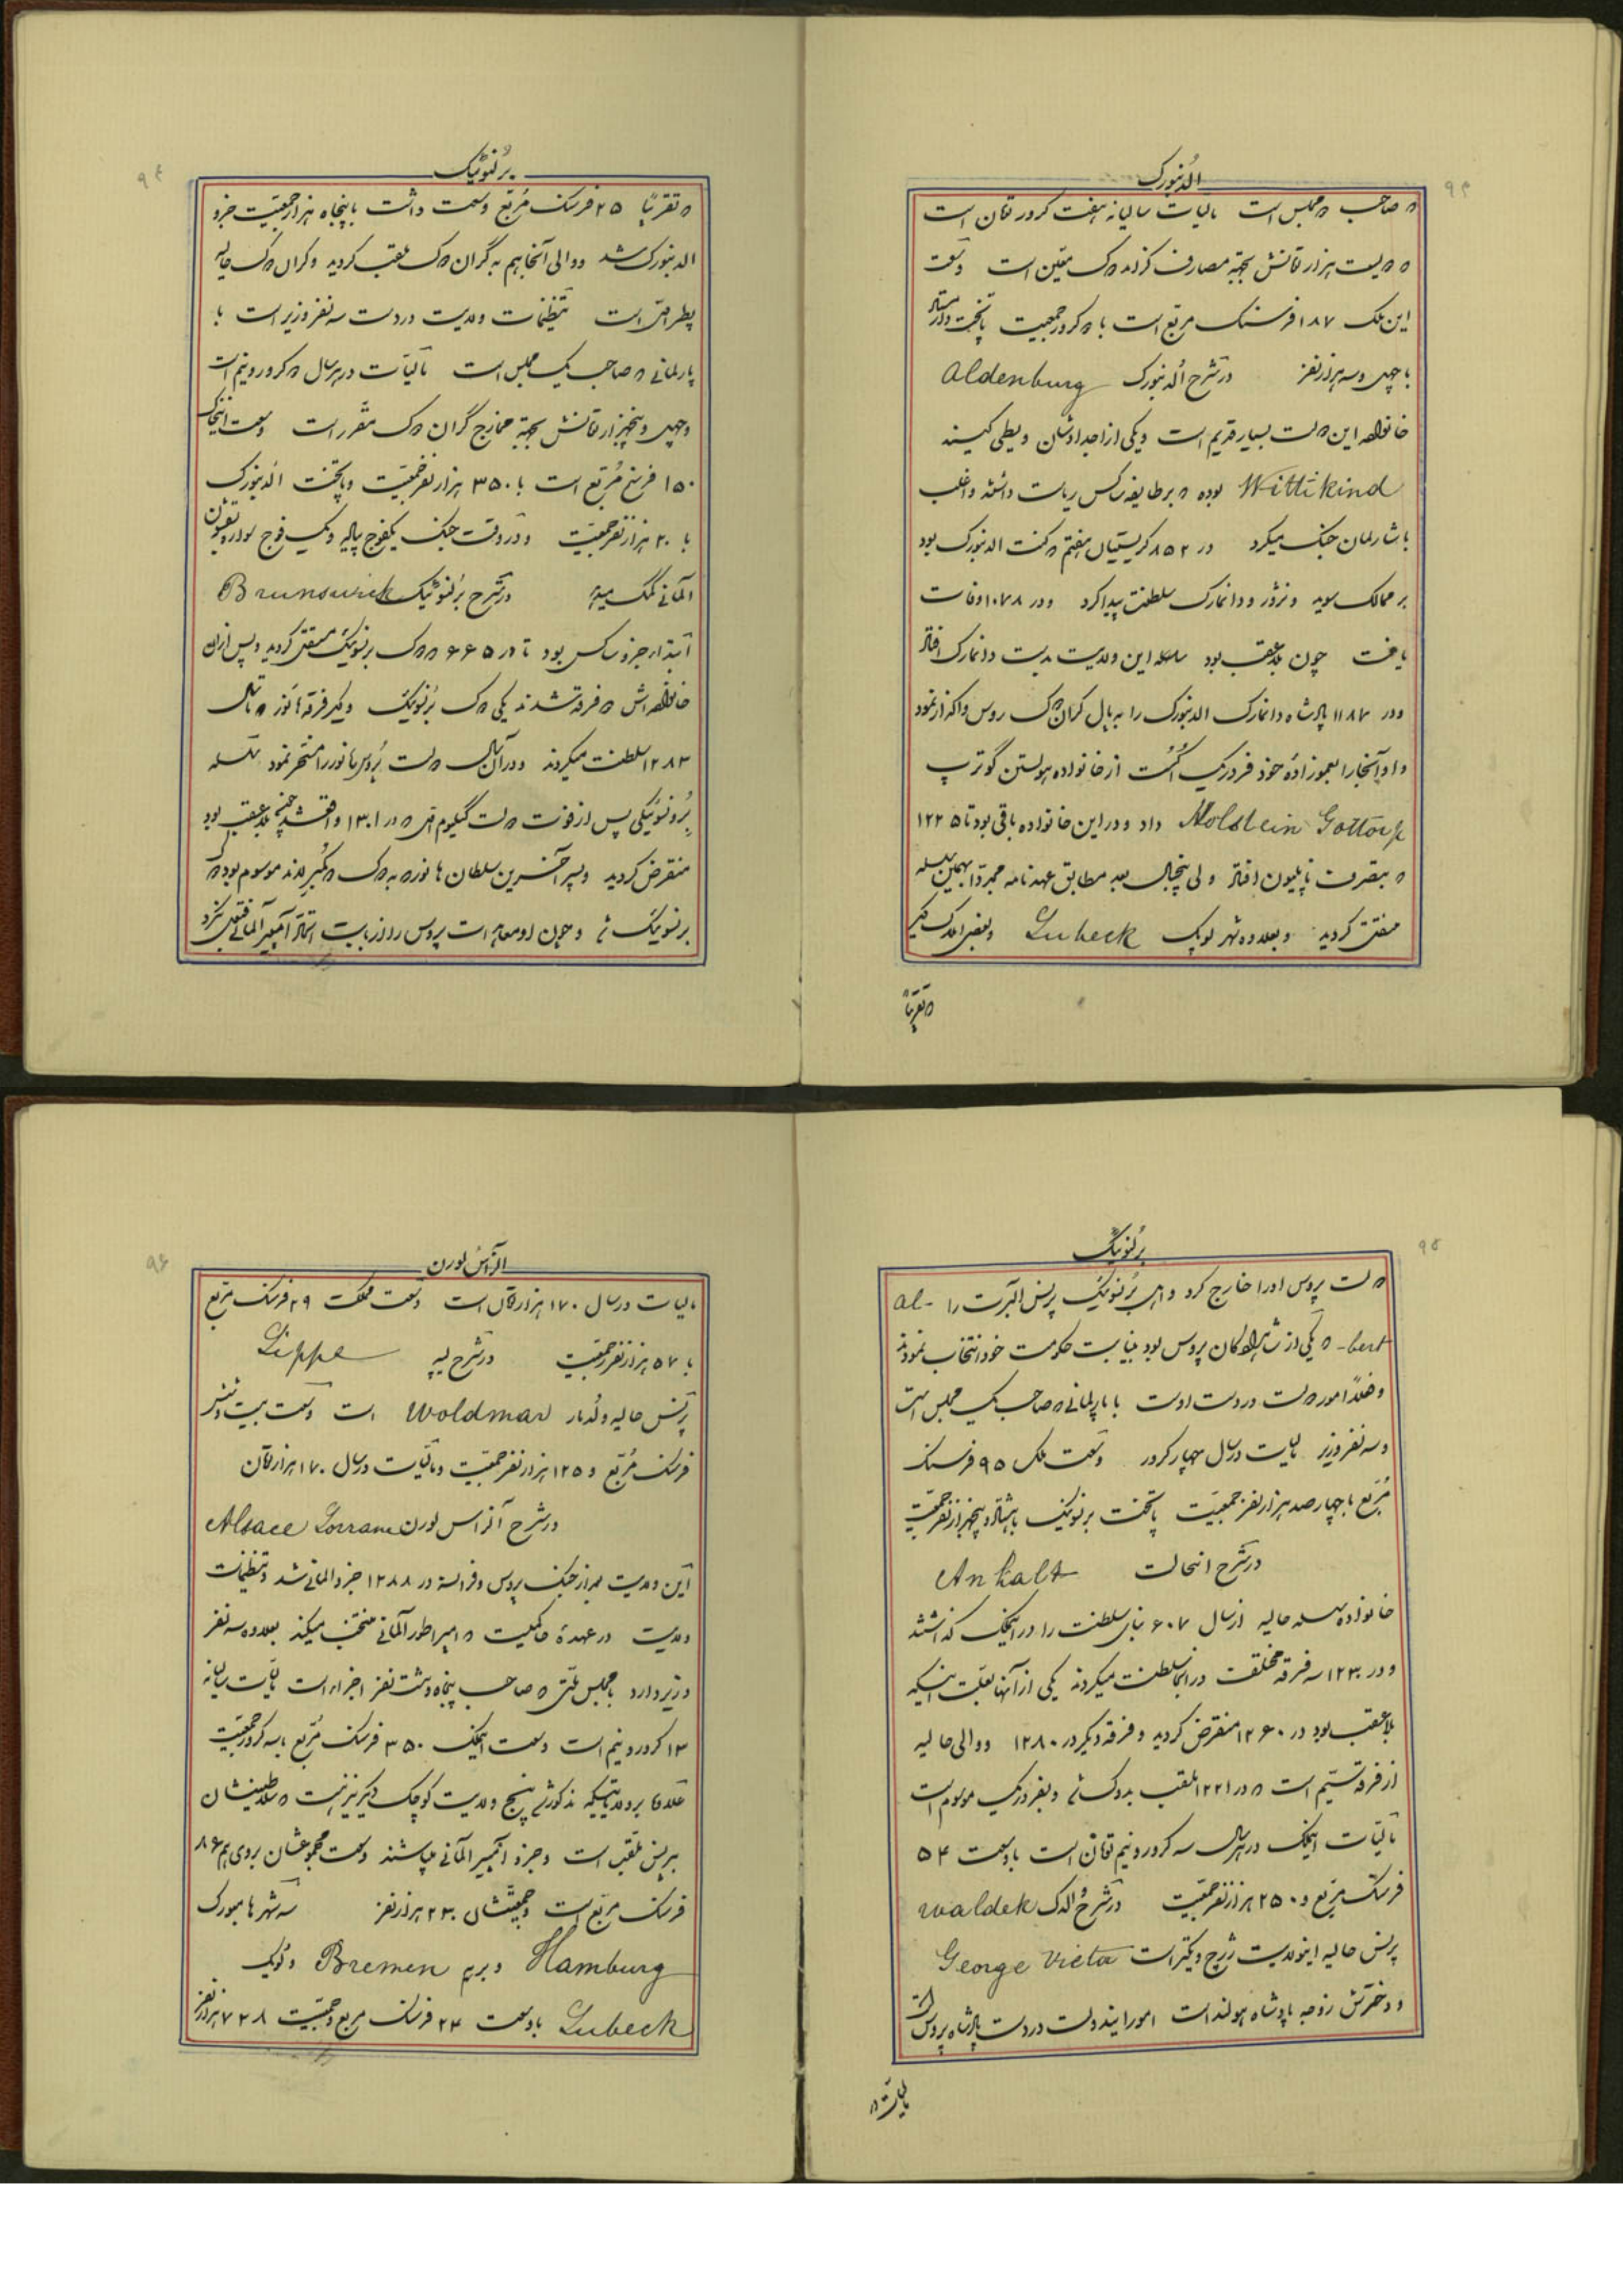 الدنبورک
صاحب مجلس است مالیات سالیانه هفت کرور قران است
بیست هزار قرانش بجهة مصارف گراند دک معین است وسعت
این ملک ۱۸۷ فرسنک مربع است با کرور جمعیت پایتخت
با چهل و سه هزار نفر در شرح اُلدنبورک Aldenburg
خانواده این دولت بسیار قدیم است و یکی از اجدادشان ویطی کیند
Wittikind بوده که بر طایفه ساکس ریاست داشته و اغلب
با شارلمان جنک میکرد در ۸۵۲ کریستیان هفتم کنت الدنبورک بود
بر ممالک سوید و نروژ و دانمارک سلطنت پیدا کرد و در ۱۰۷۸ وفات
یافت چون بلاعقب بود سلسله این ولایت بدست دانمارک افتاد
و در ۱۱۸۷ پادشاه دانمارک الدنبورک را به پال گران دک روس واگذار نمود
و او آنجا را بعموزاده خود فردریک اکست از خانواده هولستن گوترپ
Holstein Gottorp داد و در این خانواده باقی بود تا ۱۲۲۵
که بتصرف ناپلیون افتاد ولی پنجسال بعد مطابق عهدنامه مجبرا بهمین سلسله
منتقل گردید و بعلاوه شهر لوبک Lubeck و بعضی املاک دیگر
تقریباً
برُنسویک
که تقریباً ۲۵ فرسنک مُربّع وسعت داشت با پنجاه هزار جمعیّت جزو
الدنبورک شد و والی آنجا هم به گران دک ملقب گردید و گران دک حالیه
پطر است تنظیمات ولایت در دست سه نفر وزیر است با
پارلمانی که صاحب یک مجلس است مالیّات در هر سال کرور و نیم است
و چهل و پنجهزار قرانش بجهة مخارج گران دک مقرر است وسعت اینملک
۱۵۰ فرسخ مُربّع است با ۳۵۰ هزار نفر جمعیّت و پایتخت اُلدنبورک
با ۲۰ هزار نفر جمعیّت و در وقت جنک یکفوج پیاده و یک فوج سواره بقشون
آلمانی کمک میدهد در شرح برُنسویک Brunswick
ابتدا جزو ساکس بود تا در ۶۶۵ دک برنسویک مستقل گردید و پس از آن
خانواده اش دو فرقه شدند یکی دک برُنسویک و دیگر فرقه هانور که تا سال
۱۲۸۳ سلطنت میکردند و در آن سال دولت پُروس هانور را مسخر نمود سلسله
برُونسویکی پس از فوت دولت گیلیوم که در ۱۳۰۱ واقع شد چون بلاعقب بود
منقرض گردید و پسر آخرین سلطان هانور که به دک دکمبرلند موسوم بود دک
برنسویک شد و چون او معاند است پروس را از بابت آمپیر آلمانی
برُنسویک
دولت پروس او را خارج کرد و اهل برُنسویک پرنس البرت را Al-
-bert که یکی از شاهزادگان پروس بود بنیابت حکومت خود انتخاب نمودند
و فعلاً امور دولت در دست اوست با پارلمانی که صاحب یک مجلس است
و سه نفر وزیر مالیات در سال چهار کرور وسعت ملک ۹۵ فرسنک
مُربّع با چهارصد هزار نفر جمعیّت پایتخت برنسویک با هشتاد و پنجهزار نفر جمعیّت
در شرح انحالت Anhalt
خانواده سلسله حالیه از سال ۶۰۷ بنای سلطنت را در اینملک گذاشتند
و در ۱۲۳۰ سه فرقه مختلف در اینجا سلطنت میکردند یکی از آنها بعلّت اینکه
بلاعقب بود در ۱۲۶۰ منقرض گردید و فرقه دیگر در ۱۲۸۰ و والی حالیه
از فرقه سیّم است که در ۱۲۲۱ ملقب بدوک شد و بفردریک موسوم است
مالیّات اینملک در هر سال سه کرور و نیم قران است با وسعت ۵۴
فرسنک مربّع و ۲۵۰ هزار نفر جمعیّت در شرح والدک Waldek
پرنس حالیه اینولایت ژرژ ویکتر است George Victa
و دخترش زوجه پادشاه هولند است امور ایندولت در دست پادشاه پروس است
مالیات
الزاس لورن
مالیات در سال ۱۷۰ هزار قران است وسعت مملکت ۲۹ فرسنک مربع
با ۵۷ هزار نفر جمعیّت در شرح لیپه Lippe
پرنس حالیه ولدمار Woldmar است وسعت بیست و شش
فرسنک مُربّع و ۱۲۵ هزار نفر جمعیّت و مالیّات در سال ۱۷۰ هزار قران
در شرح آلزاس لورن Alsace Lorrane
این ولایت بعد از جنک پروس و فرانسه در ۱۲۸۸ جزو المانی شد و تنظیمات
ولایت در عهدهٔ حاکمیست که امپراطور آلمانی منتخب میکند بعلاوه سه نفر
وزیر دارد با مجلس ملّتی که صاحب پنجاه و هشت نفر اجزاء است مالیّات سالیانه
۱۳ کرور و نیم است وسعت اینملک ۳۵۰ فرسنک مُربّع با سه کرور جمعیّت
علاوه بر ولایاتیکه مذکور شد پنج ولایت کوچک دیگر نیز هست که سلاطینشان
بپرنس ملقّب است و جزو آمپیر آلمانی میباشند وسعت مجموعشان روی هم ۸۶
فرسنک مربّع است و جمعیّتشان ۲۳۰ هزار نفر سه شهر هامبورک
Hamburg و برم Bremen و لُوبک
Lubeck با وسعت ۲۴ فرسنک مربع و جمعیّت ۷۲۸ هزار نفر